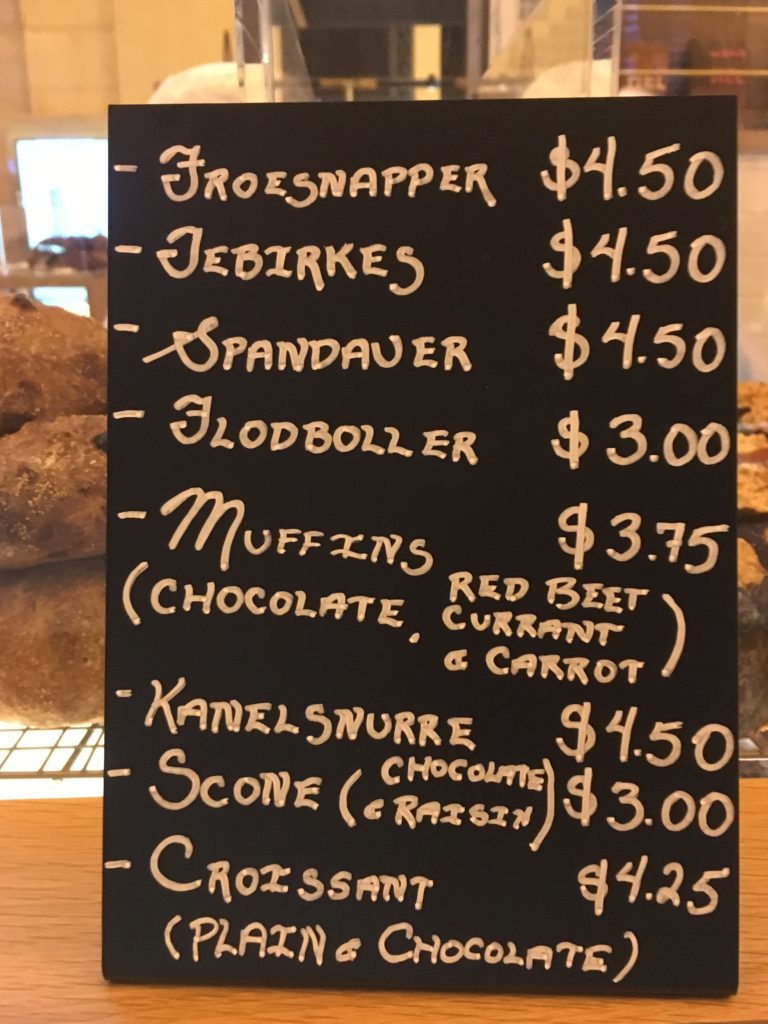 - Froesnapper $4.50
- Tebirkes $4.50
- Spandauer $4.50
- Flodboller $3.00
- Muffins $3.75
(Chocolate, Red Beet
Currant
& Carrot)
- Kanelsnurre $4.50
- Scone (Chocolate
& Raisin) $3.00
- Croissant $4.25
(Plain & Chocolate)